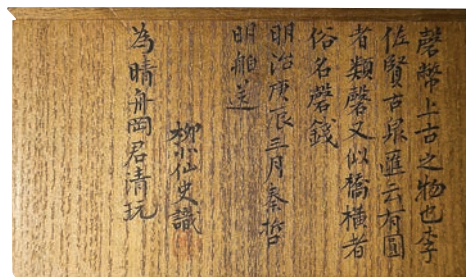 磬幣上古之物也李
佐賢古泉匯云有圓
者類磬又似橋橫者
俗名磬錢
明治庚辰三月秦哲
明舶送
柳小仙史識
為晴舟岡君清玩